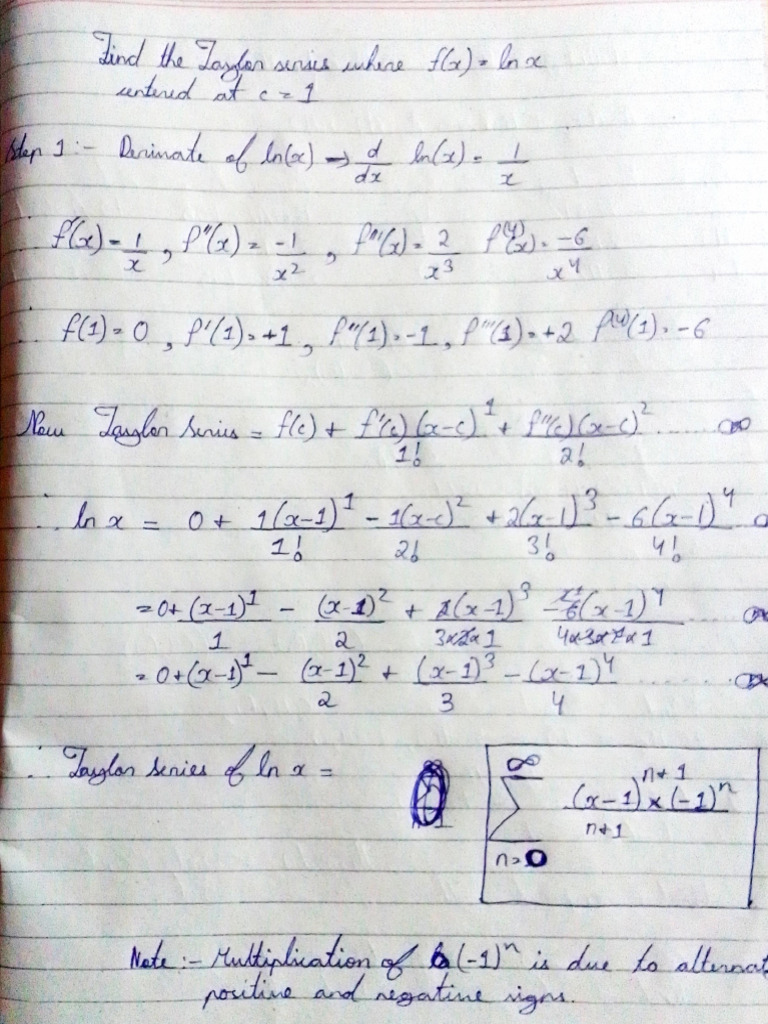 Find the Taylor series where f(x) = ln x
centered at c = 1
Step 1 :- Derivate of ln(x) → d/dx ln(x) = 1/x
f'(x) = 1/x , f''(x) = -1/x² , f'''(x) = 2/x³ f⁽⁴⁾(x) = -6/x⁴
f(1) = 0 , f'(1) = +1 , f''(1) = -1 , f'''(1) = +2 f⁽⁴⁾(1) = -6
Now Taylor Series = f(c) + f'(c)(x-c)¹/1! + f''(c)(x-c)²/2! ...... ∞
∴ ln x = 0 + 1(x-1)¹/1! - 1(x-c)²/2! + 2(x-1)³/3! - 6(x-1)⁴/4!
= 0 + (x-1)¹/1 - (x-1)²/2 + 2(x-1)³/3×2×1 - 6(x-1)⁴/4×3×2×1 ∞
= 0 + (x-1)¹ - (x-1)²/2 + (x-1)³/3 - (x-1)⁴/4 ...... ∞
∴ Taylor Series of ln x = ∞ Σ n=0 (x-1)ⁿ⁺¹ × (-1)ⁿ/n+1
Note :- Multiplication of (-1)ⁿ is due to alternat
positive and negative signs.